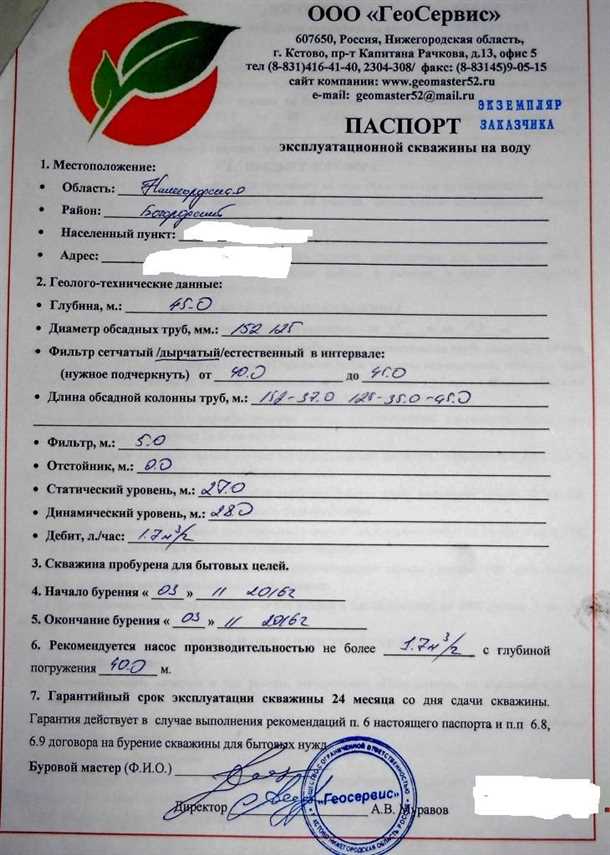 ООО «ГеоСервис»
607650, Россия, Нижегородская область,
г. Кстово, пр-т Капитана Рачкова, д.13, офис 5
тел (8-831)416-41-40, 2304-308/ факс: (8-83145)9-05-15
сайт компании: www.geomaster52.ru
e-mail: geomaster52@mail.ru
ЭКЗЕМПЛЯР
ЗАКАЗЧИКА
ПАСПОРТ
эксплуатационной скважины на воду
1. Местоположение:
• Область: Нижегородская
• Район: Богородский
• Населенный пункт:
• Адрес:
2. Геолого-технические данные:
• Глубина, м.: 45.0
• Диаметр обсадных труб, мм.: 152 125
• Фильтр сетчатый /дырчатый/естественный в интервале:
(нужное подчеркнуть) от 40.0 до 45.0
• Длина обсадной колонны труб, м.: 152-37.0 125-35.0-45.0
• Фильтр, м.: 5.0
• Отстойник, м.: 0.0
• Статический уровень, м.: 27.0
• Динамический уровень, м.: 28.0
• Дебит, л./час: 1.7 м³/г
3. Скважина пробурена для бытовых целей.
4. Начало бурения « 03 » 11 2016г
5. Окончание бурения « 03 » 11 2016г
6. Рекомендуется насос производительностью не более 1.7м³/г с глубиной
погружения 40.0 м.
7. Гарантийный срок эксплуатации скважины 24 месяца со дня сдачи скважины.
Гарантия действует в случае выполнения рекомендаций п. 6 настоящего паспорта и п.п 6.8,
6.9 договора на бурение скважины для бытовых нужд
Буровой мастер (Ф.И.О.)
Директор А.В. Муравов
«Геосервис»